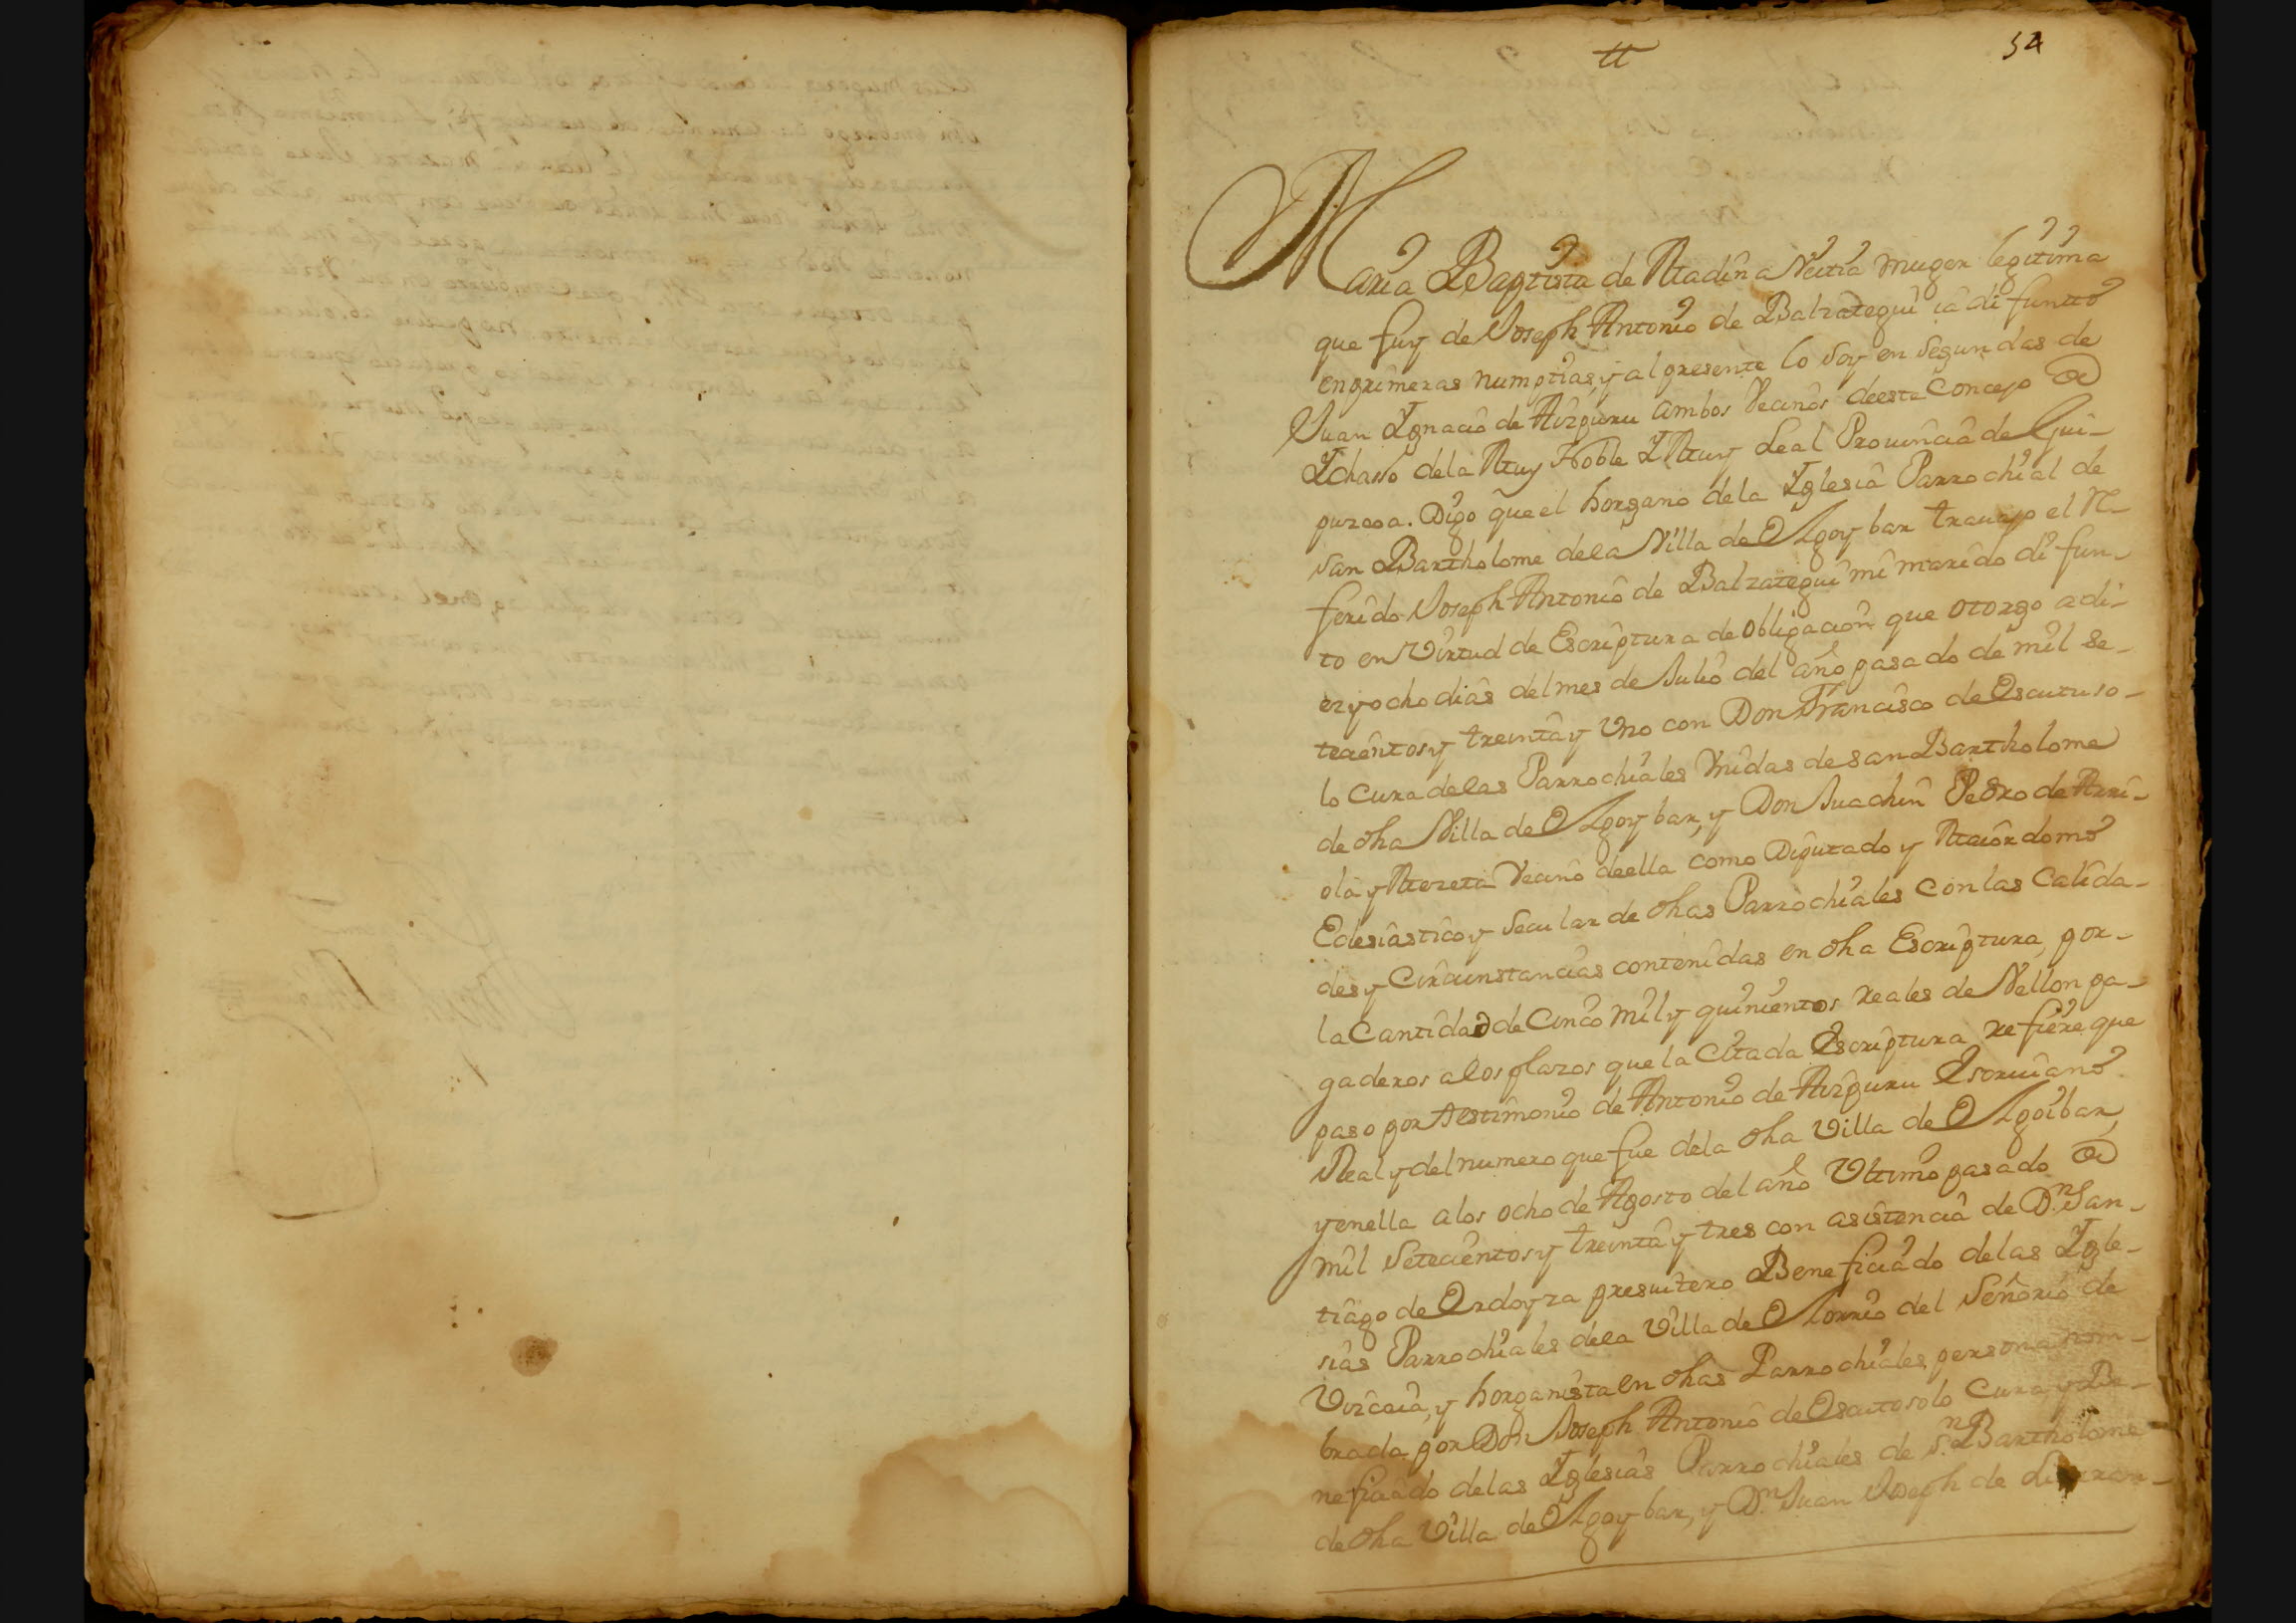 tt
54
Maria Baptista de Madina Veitia muger legitima
que fuy de Joseph Antonio de Balzategui ia difuntto
en primeras numptias, y al presente lo soy en segundas de
Juan Ygnacio de Aizpuru ambos Vecinos deeste Concejo de
Ychasso dela Muy Noble Y Muy Leal Prouincia de Gui-
puzcoa. Digo que el horgano dela Yglesia Parrochial de
san Bartholome dela Villa de Elgoybar trauajo el Re-
ferido Joseph Antonio de Balzategui mi marido difun-
to en Virtud de Escriptura de obligacion que otorgo a di-
ez y ocho dias del mes de Julio del año pasado de mil se-
tecientos y treinta y Uno con Don Francisco de Oscutuso-
lo Cura delas Parrochiales Unidas de san Bartholome
de dha Villa de Elgoybar, y Don Juachin Pedro de Arri-
ola y Mereta Vecino deella como Diputado y Maiordomo
Eclesiastico y secular de dhas Parrochiales con las Calida-
des y Circunstancias contenidas en dha Escriptura, por-
la Cantidad de Cinco mil y quinientos Reales de Vellon pa-
gaderos a los plazos que la Citada Escriptura refiere que
paso por testimonio de Antonio de Aizpuru Escriuano
Real y del numero que fue dela dha Villa de Elgoibar,
y en ella a los ocho de Agosto del año Ultimo pasado de
mil setecientos y treinta y tres con asistencia de D.n San-
tiago de Ordoyza presuitero Beneficiado delas Ygle-
sias Parrochiales dela Villa de Elorrio del Señorio de
Vizcaia, y horganista en dhas Parrochiales, persona nom-
brada por Don Joseph Antonio de Oscutosolo Cura, y Be-
neficiado delas Yglesias Parrochiales de S.n Bartholome
de dha Villa de Elgoybar, y D.n Juan Joseph de